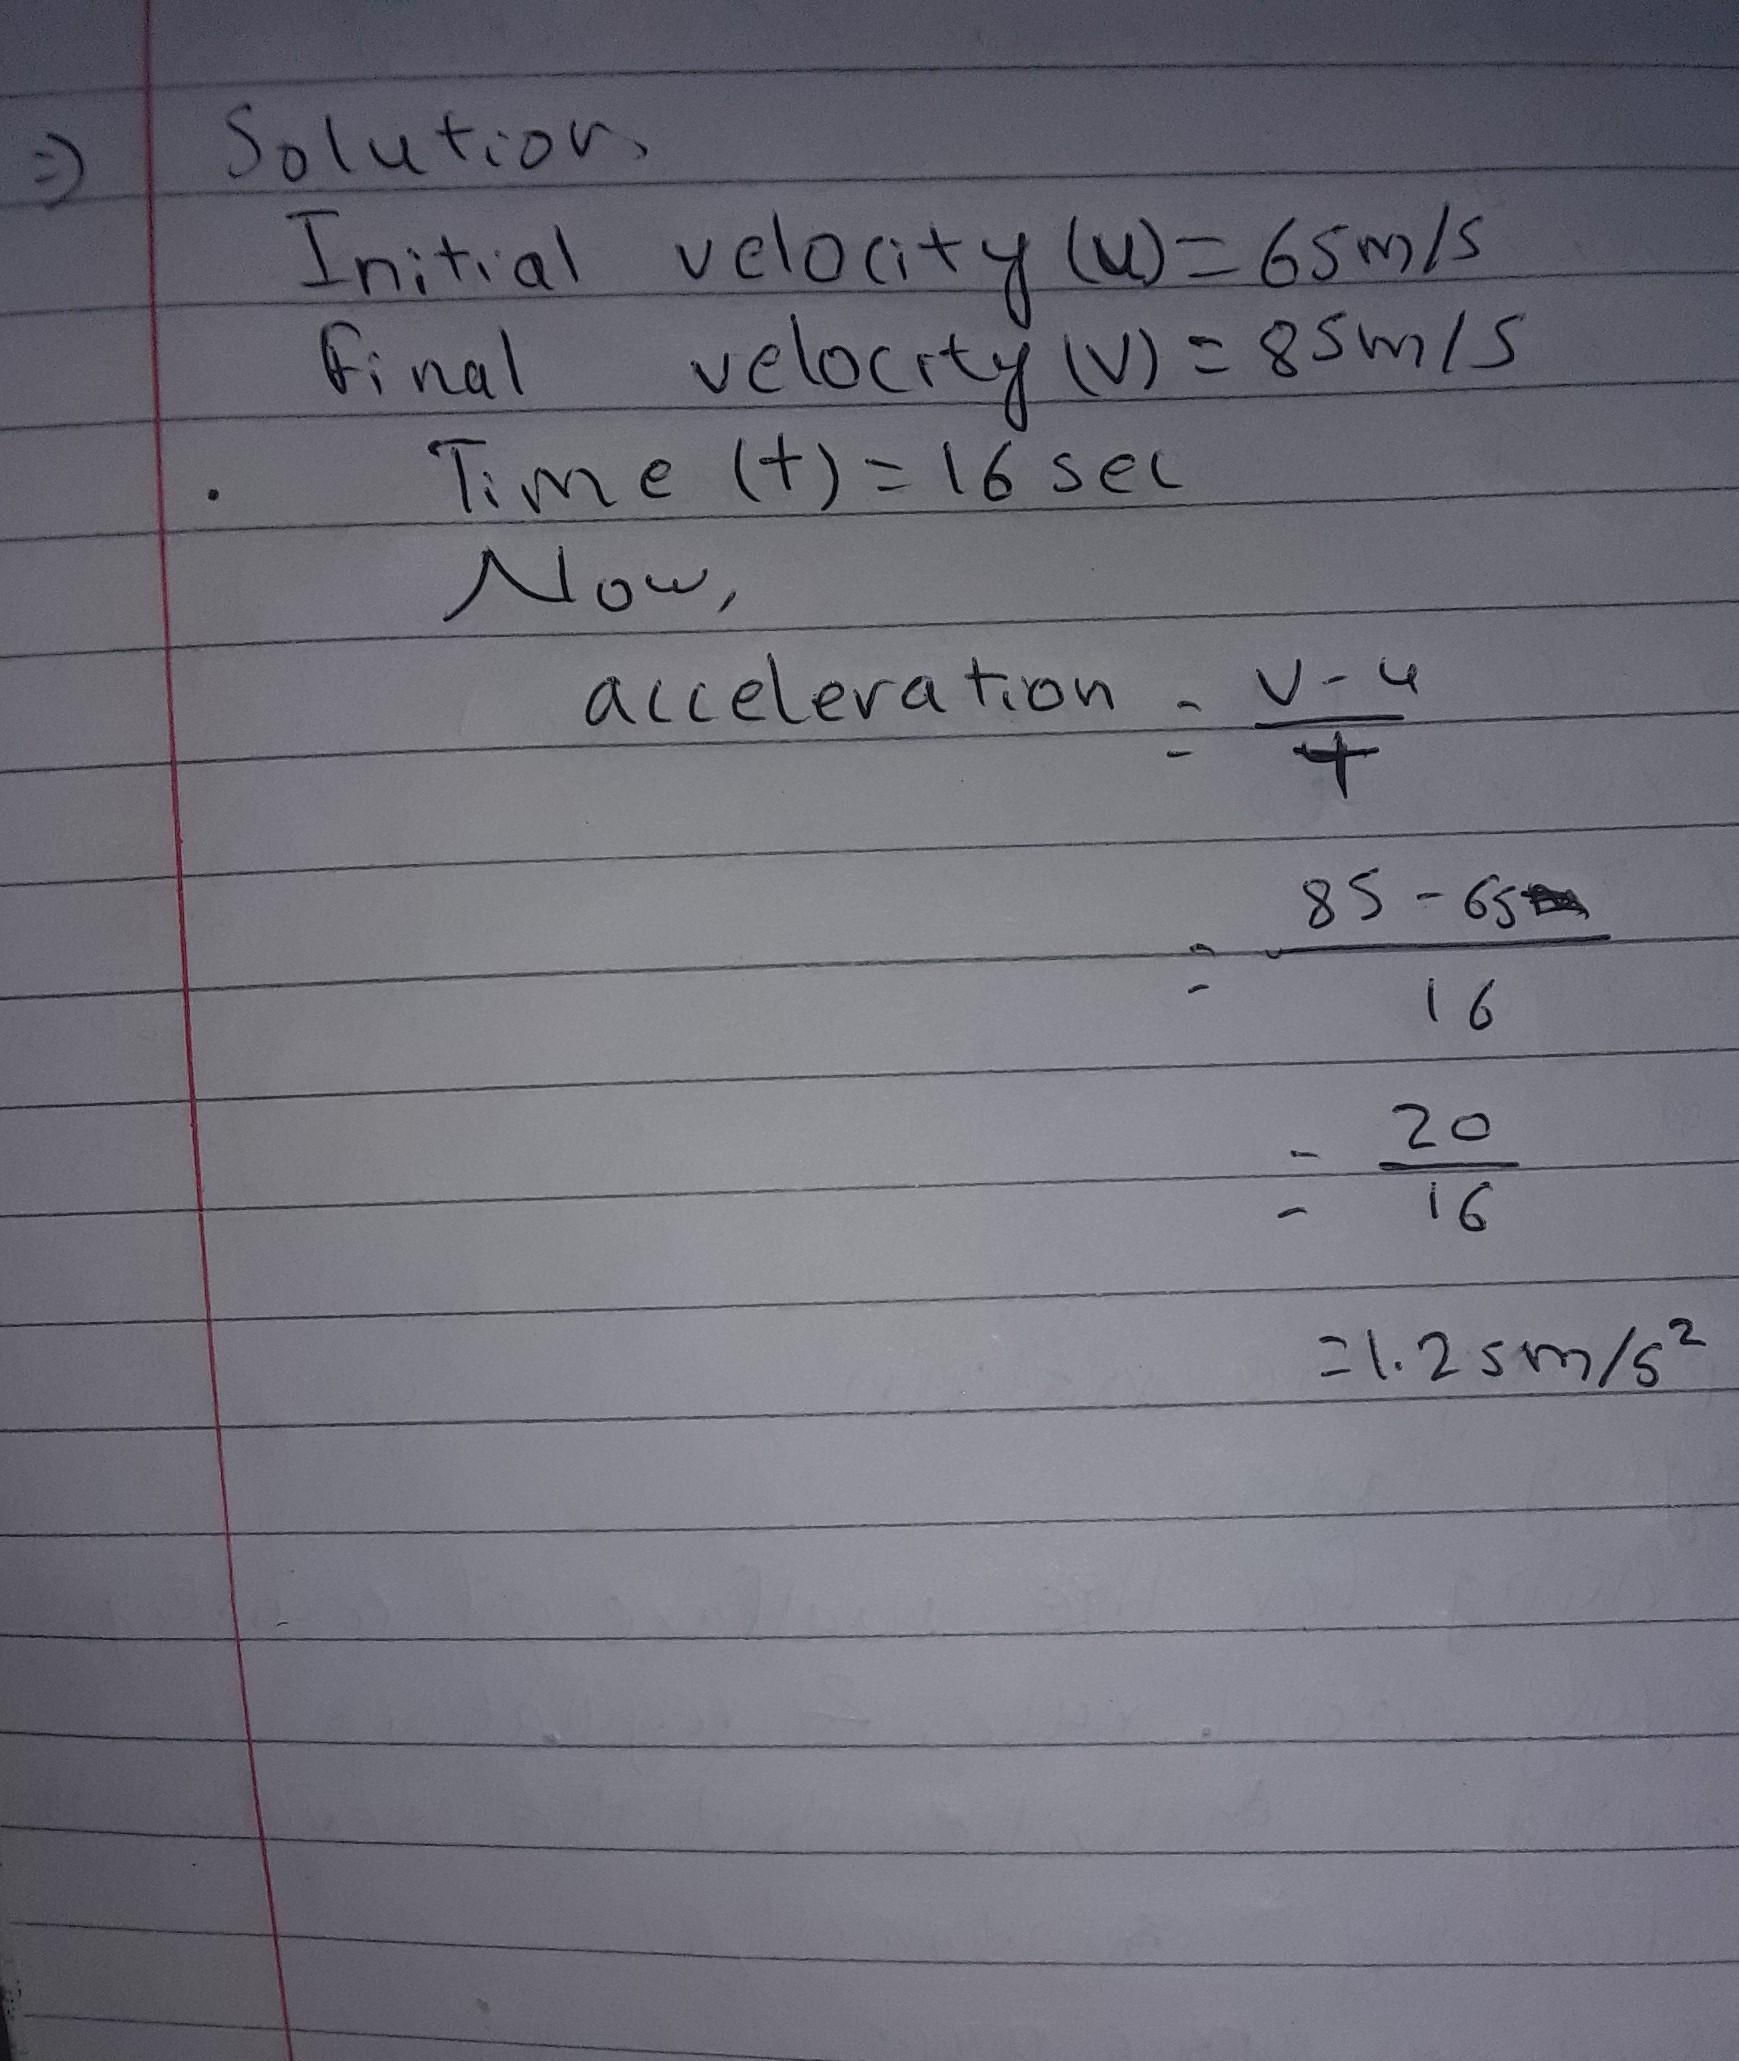 =) Solution,
Initial velocity (u) = 65m/s
final velocity (v) = 85m/s
Time (t) = 16 sec
Now,
acceleration = v-u
t
= 85 - 65
16
= 20
16
= 1.25m/s²